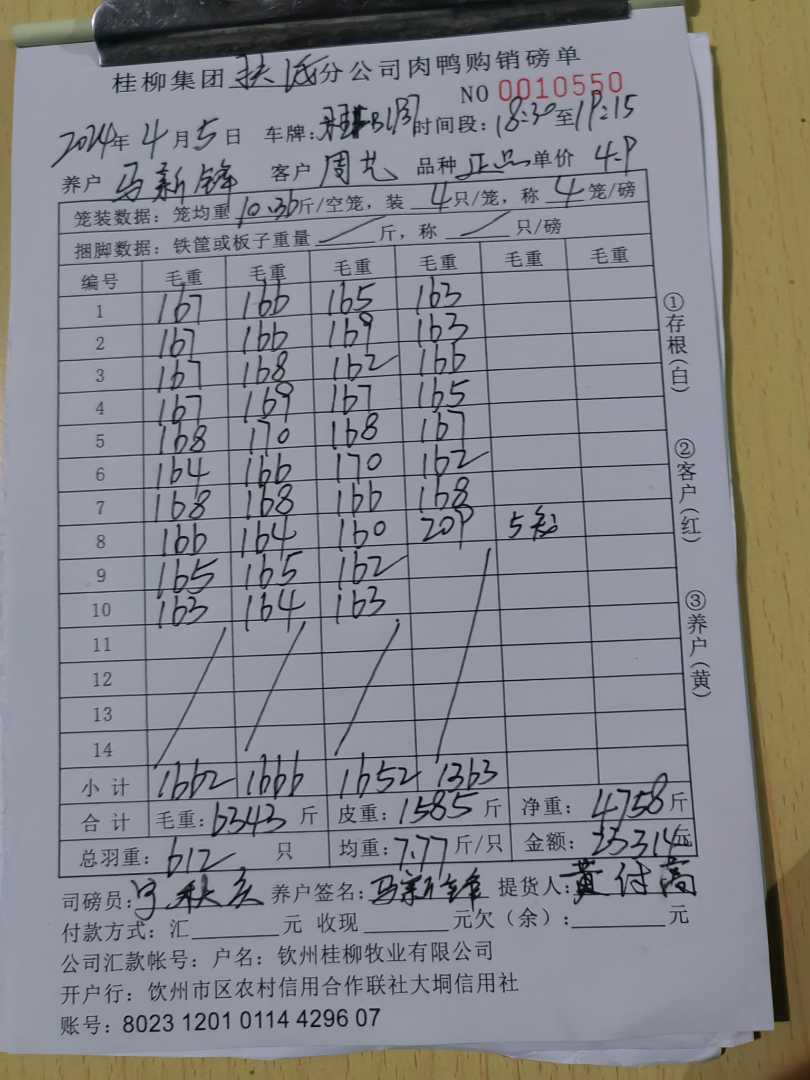 桂柳集团扶派分公司肉鸭购销磅单
NO 0010550
2024年4月5日 车牌: 时间段:18:30至19:15
养户 马新锋 客户 周艺 品种 正品 单价 4.9
笼装数据:笼均重10.36斤/空笼,装4只/笼,称4笼/磅
捆脚数据:铁筐或板子重量/斤,称/只/磅
编号 毛重 毛重 毛重 毛重 毛重 毛重
1 167 166 165 163
2 167 166 169 163
3 167 168 162 166
4 167 169 167 165
5 168 170 168 167
6 164 166 170 162
7 168 168 166 168
8 166 164 160 209 5笼
9 165 165 162
10 163 164 163
11
12
13
14
小计 1662 1666 1652 1363
合计 毛重:6343斤 皮重:1585斤 净重:4758斤
总羽重:612只 均重:7.77斤/只 金额:23314元
司磅员: 养户签名:马新锋 提货人:黄付高
付款方式:汇______元 收现______元欠(余):______元
公司汇款帐号:户名:钦州桂柳牧业有限公司
开户行:钦州市区农村信用合作联社大垌信用社
账号:8023 1201 0114 4296 07
①存根(白)
②客户(红)
③养户(黄)